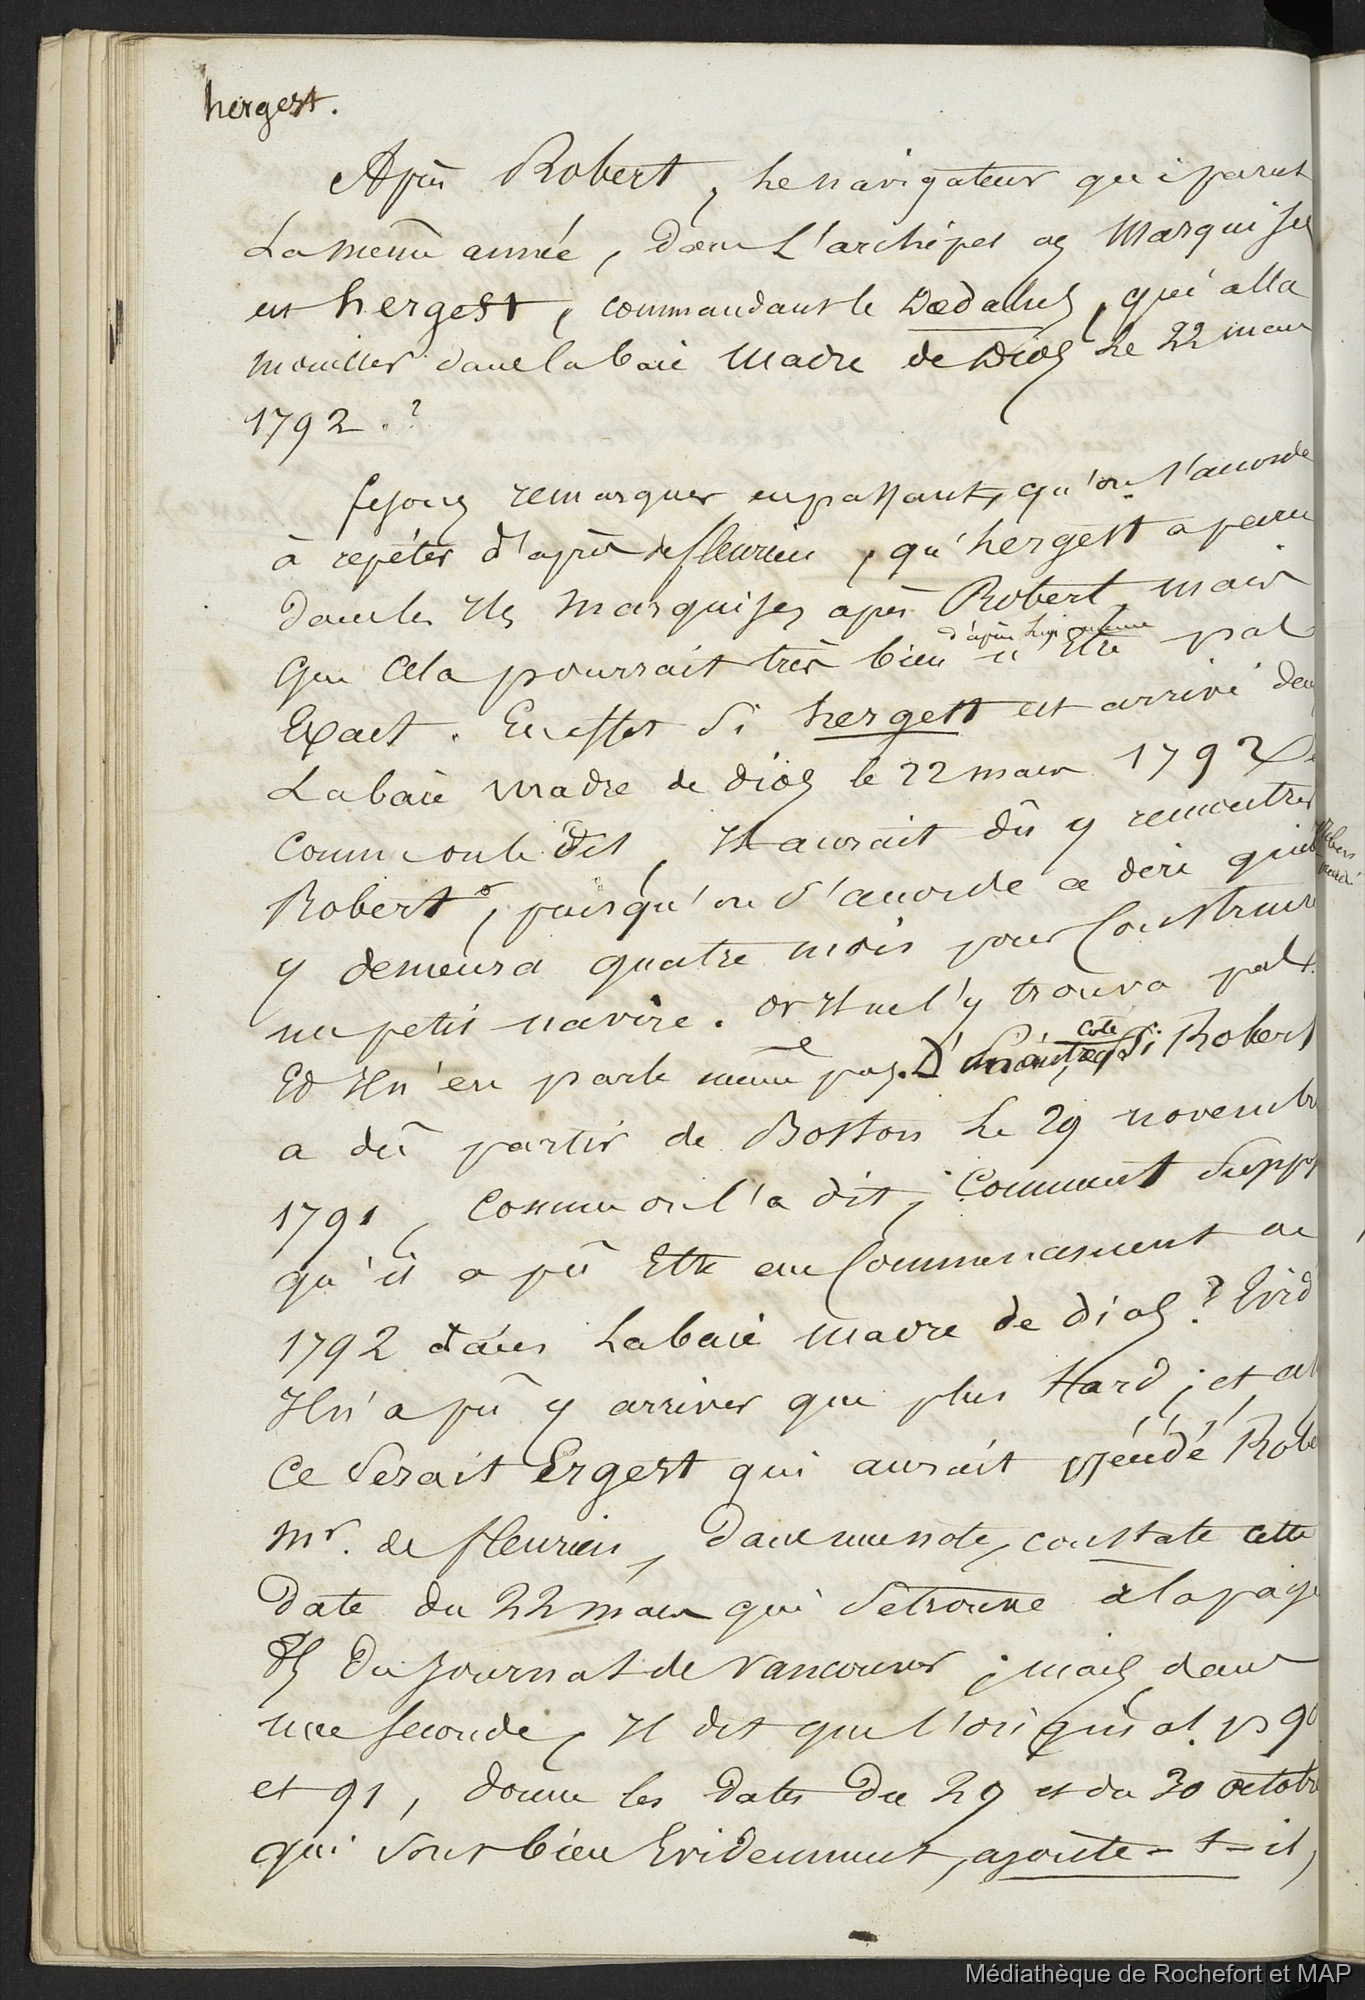 hergest.
Après Robert, le navigateur qui parut
La même année, dans L'archipel des Marquises
est hergest, commandant le Dædalus, qui alla
mouiller dans la baie Madre de Dios le 22 mars
1792.?
fesons remarquer en passant, qu'on s'accorde
à repéter d'après de fleurieu, qu'hergest a paru
dans les Iles Marquises après Robert mais
d'après lui même
que cela pourrait très bien n'Etre pas
Exact. En effet si hergest est arrivé dans
La baie Madre de dios le 22 mars 1792
comme on le dit, Il aurait dû y rencontrer
Robert, puisqu'on s'accorde a dire qu'il
y demeura quatre mois pour Construire
un petit navire. or Il ne l'y trouva pas
coté
Et Il n'en parle même pas. D'un autre Si Robert
a dû partir de Boston le 29 novembre
1791, comme on l'a dit, Comment Supp
qu'il a pû Etre au Commencement de
1792 dans La baie madre de dios? Evid
Il n'a pû y arriver que plus tard; et al
Ce Serait Ergest qui aurait précédé Robe
Mr. de fleurieu, dans une note, constate cette
Date du 22 mars qui Se trouve à la page
du Journal de Vancouver; mais dans
une seconde, Il dit que l'original p 90
et 91, donne les dates du 29 et du 30 octobre
qui Sont bien Evidemment, ajoute-t-il,
Médiathèque de Rochefort et MAP